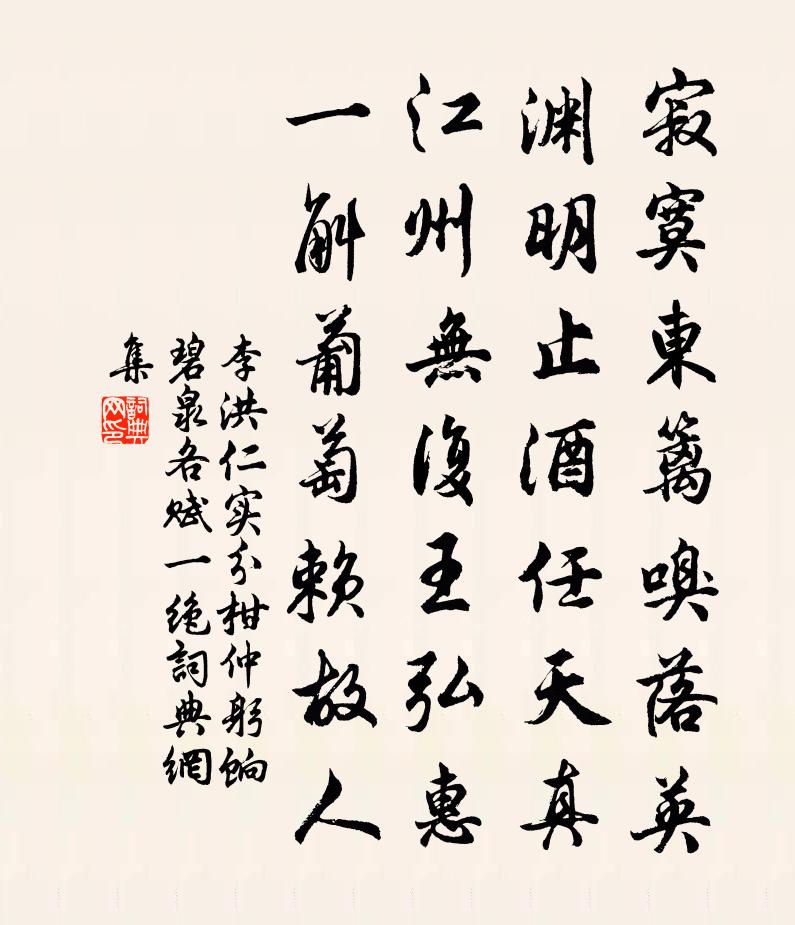 寂寞東籬嗅落英
淵明止酒任天真
江州無復王弘惠
一斛葡萄賴故人
李洪仁实分柑仲躬餉
碧泉各赋一绝詞典網
集
詞典网印